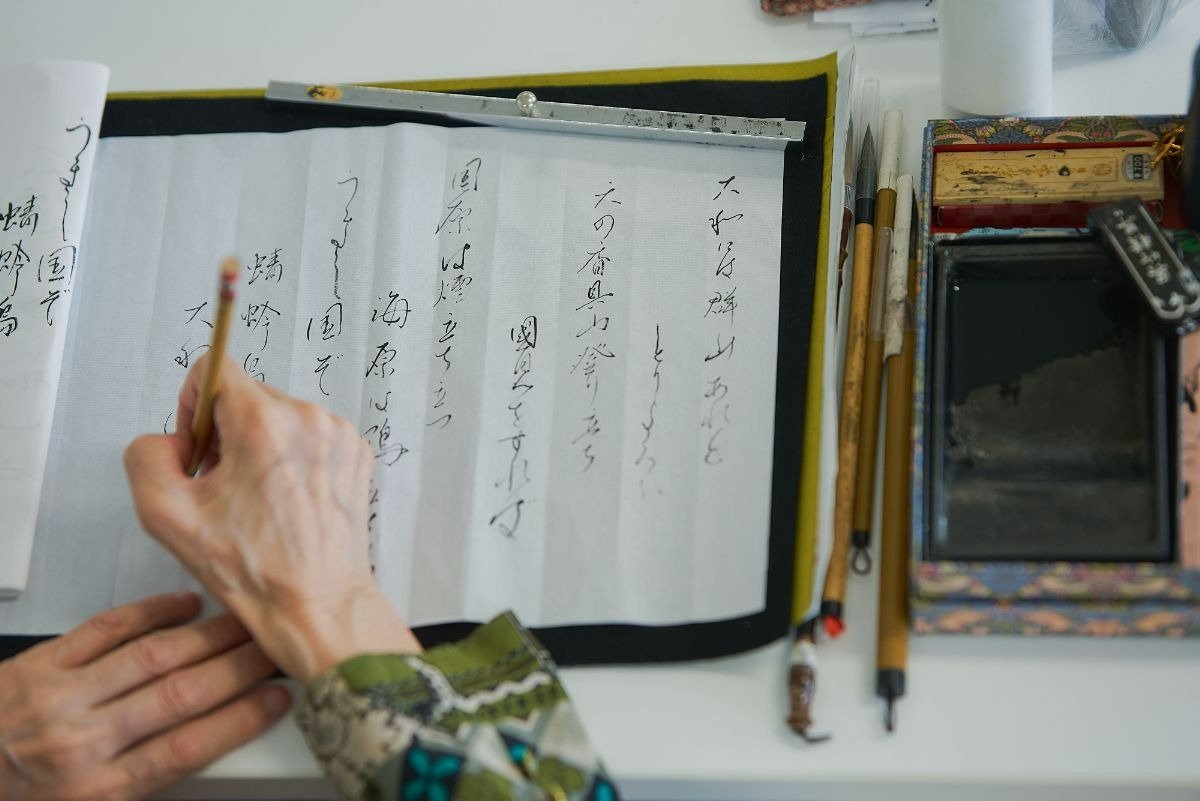 大和には群山あれど
とりよろふ
天の香具山登り立ち
國見をすれば
国原は煙立ち立つ
海原は鴎立
うまし国ぞ
蜻蛉島
大和
うまし国ぞ
蜻蛉島
¥700